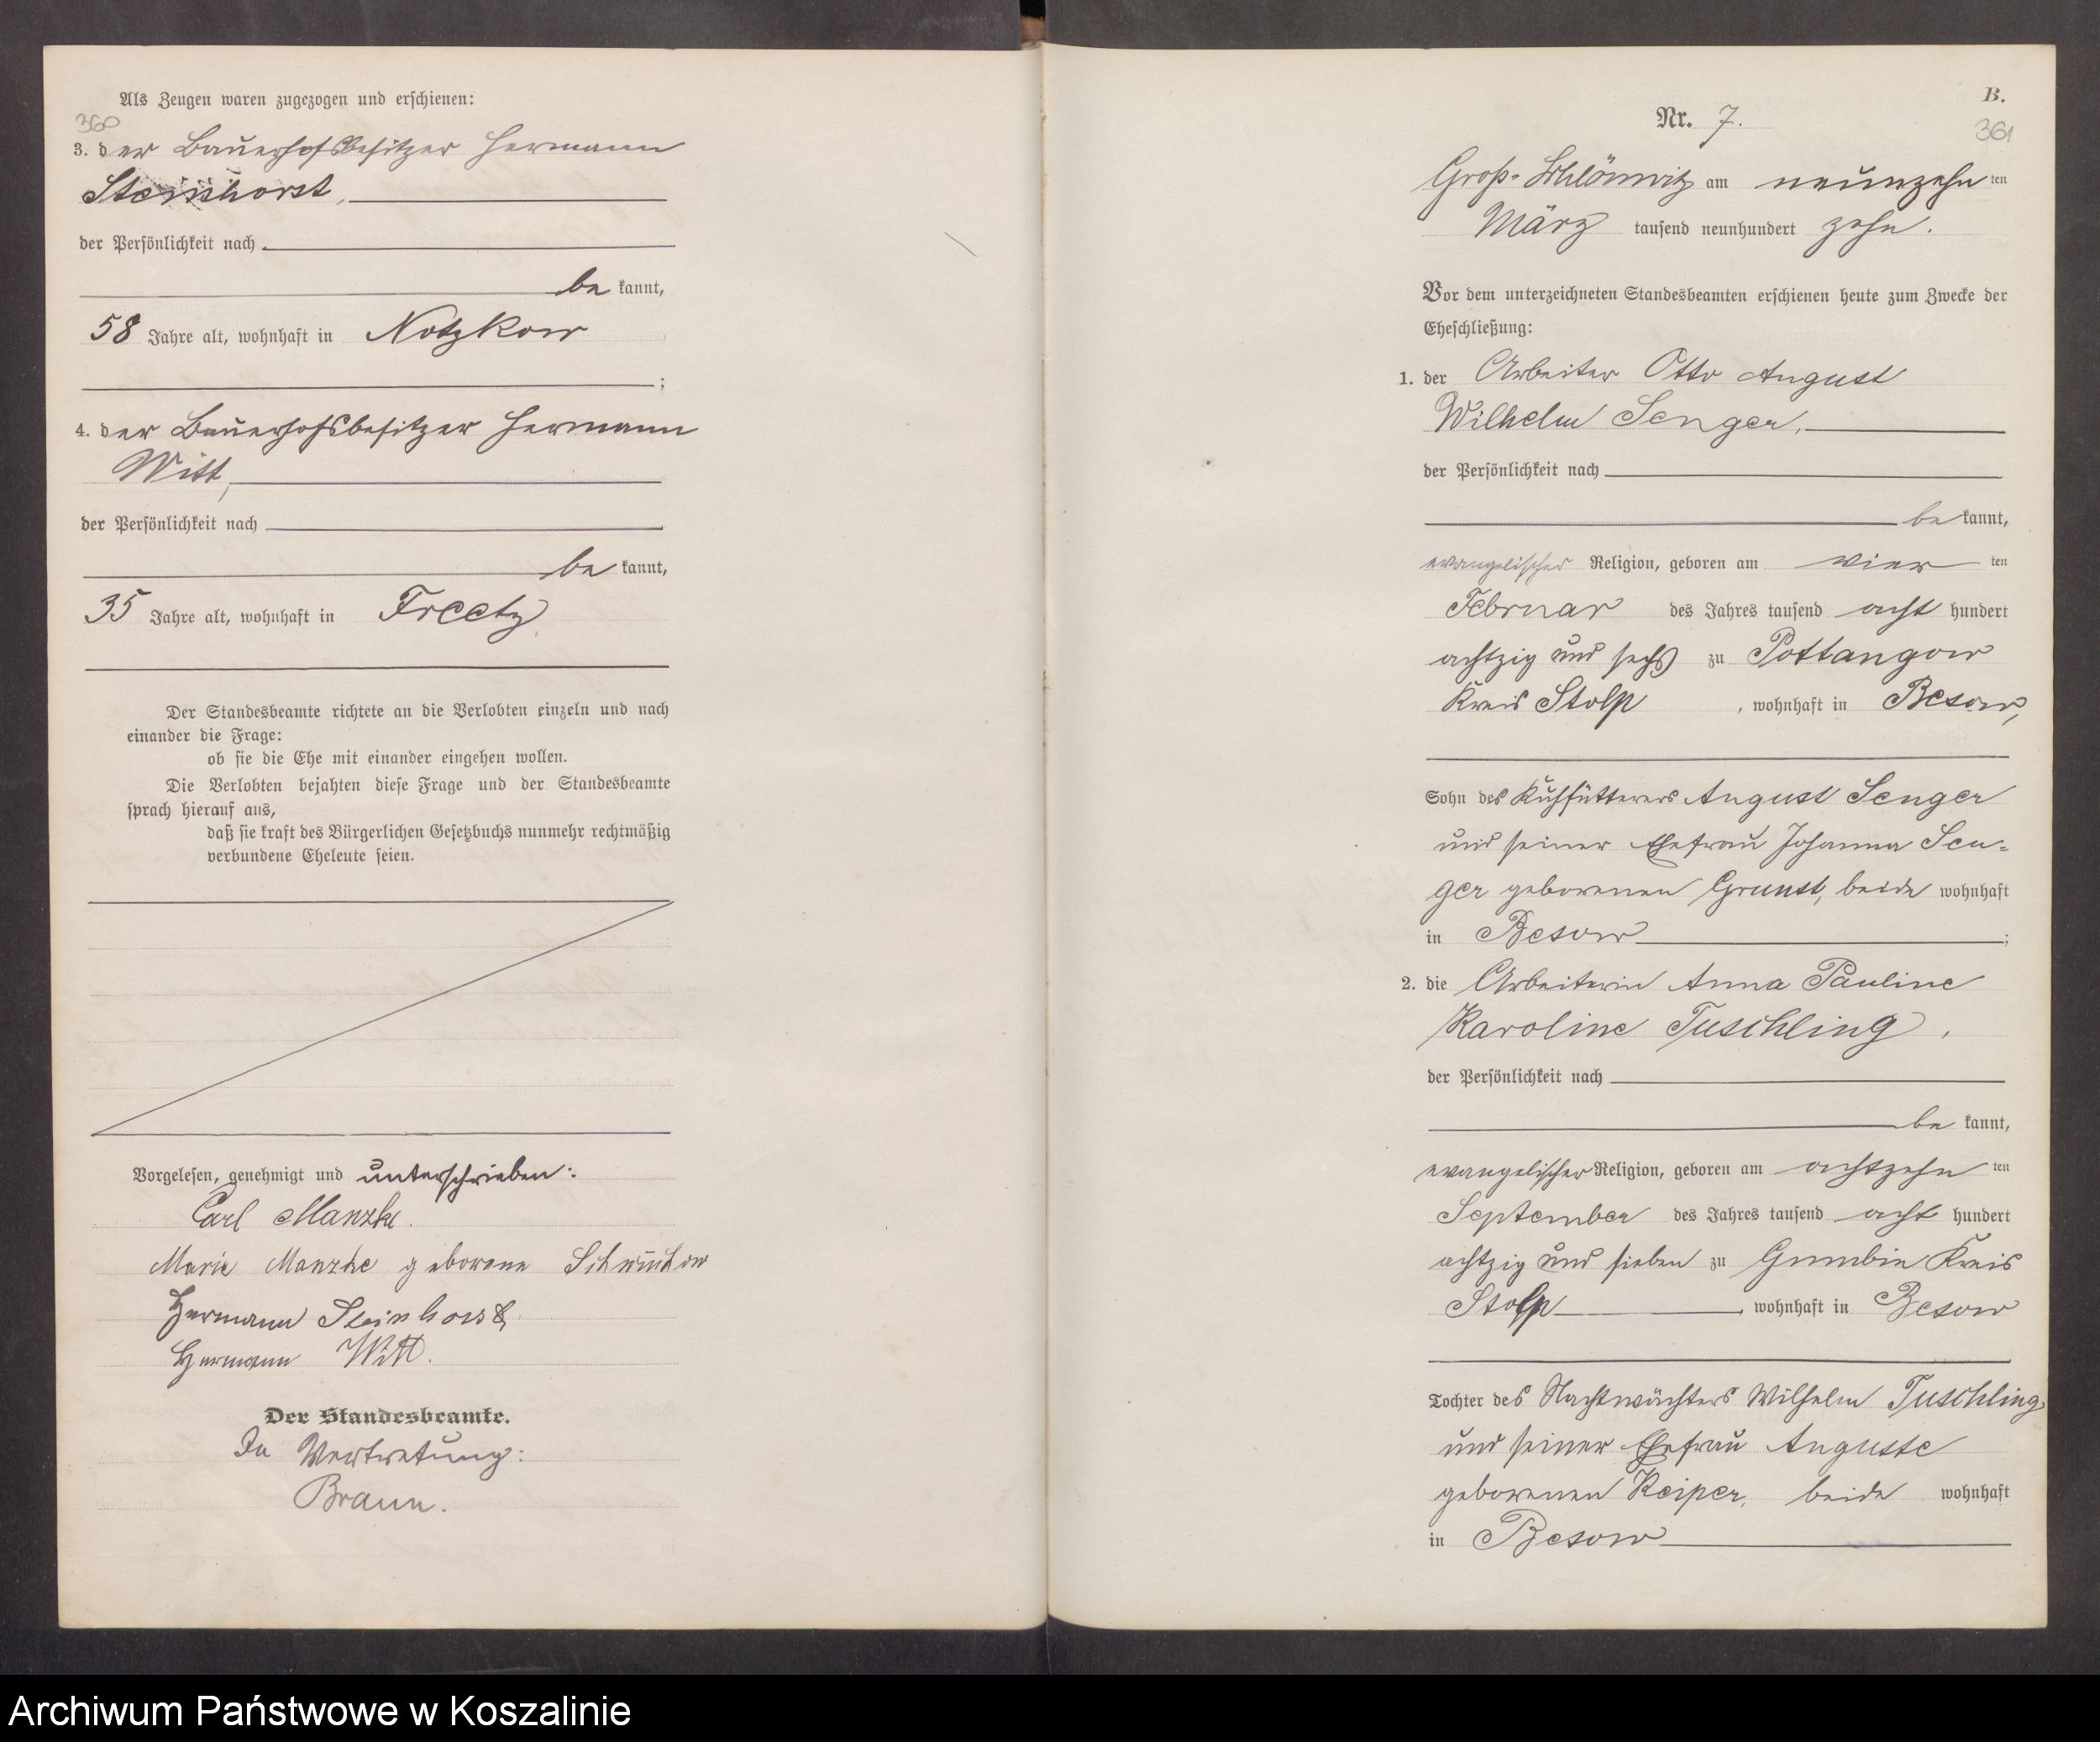 Als Zeugen waren zugezogen und erschienen:
360
3. der Bauerhofsbesitzer Hermann
Steinhorst,
der Persönlichkeit nach
be kannt,
58 Jahre alt, wohnhaft in Notzkow
;
4. der Bauerhofsbesitzer Hermann
Witt,
der Persönlichkeit nach
be kannt,
35 Jahre alt, wohnhaft in Freetz
Der Standesbeamte richtete an die Verlobten einzeln und nach
einander die Frage:
ob sie die Ehe mit einander eingehen wollen.
Die Verlobten bejahten diese Frage und der Standesbeamte
sprach hierauf aus,
daß sie kraft des Bürgerlichen Gesetzbuchs nunmehr rechtmäßig
verbundene Eheleute seien.
Vorgelesen, genehmigt und unterschrieben:
Carl Manzke.
Marie Manzke geborene
Hermann Steinhorst,
Hermann Witt.
Der Standesbeamte.
In Vertretung:
Braun.
B.
Nr. 7.
361
Groß-Schlönwitz am neunzehn ten
März tausend neunhundert zehn.
Vor dem unterzeichneten Standesbeamten erschienen heute zum Zwecke der
Eheschließung:
1. der Arbeiter Otto August
Wilhelm Senger,
der Persönlichkeit nach
be kannt,
evangelischer Religion, geboren am vier ten
Februar des Jahres tausend acht hundert
achtzig und sechs zu Pottangow
Kreis Stolp , wohnhaft in Besow,
Sohn des Kuhfütterers August Senger
und seiner Ehefrau Johanna Sen-
ger geborenen Grunst, beide wohnhaft
in Besow ;
2. die Arbeiterin Anna Pauline
Karoline Tuschling,
der Persönlichkeit nach
be kannt,
evangelischer Religion, geboren am achtzehn ten
September des Jahres tausend acht hundert
achtzig und sieben zu Gumbin Kreis
Stolp , wohnhaft in Besow
Tochter des Nachtwächters Wilhelm Tuschling
und seiner Ehefrau Auguste
geborenen Keiper, beide wohnhaft
in Besow
Archiwum Państwowe w Koszalinie